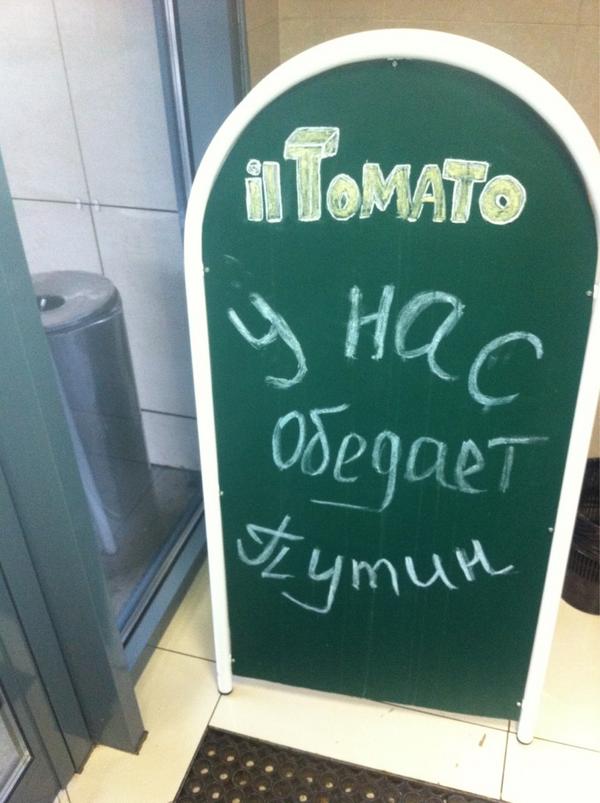 il TOMATO
У нас
обедает
Путин